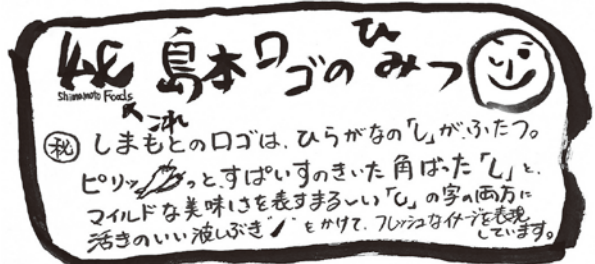 島本ロゴのひみつ
Shimamoto Foods
これ
秘 しまもとのロゴは、ひらがなの「し」が、ふたつ。
ピリッっと、すぱいすのきいた角ばった「し」と、
マイルドな美味しさを表すまるーい「し」の字の両方に
活きのいい波しぶき をかけて、フレッシュなイメージを表現
しています。